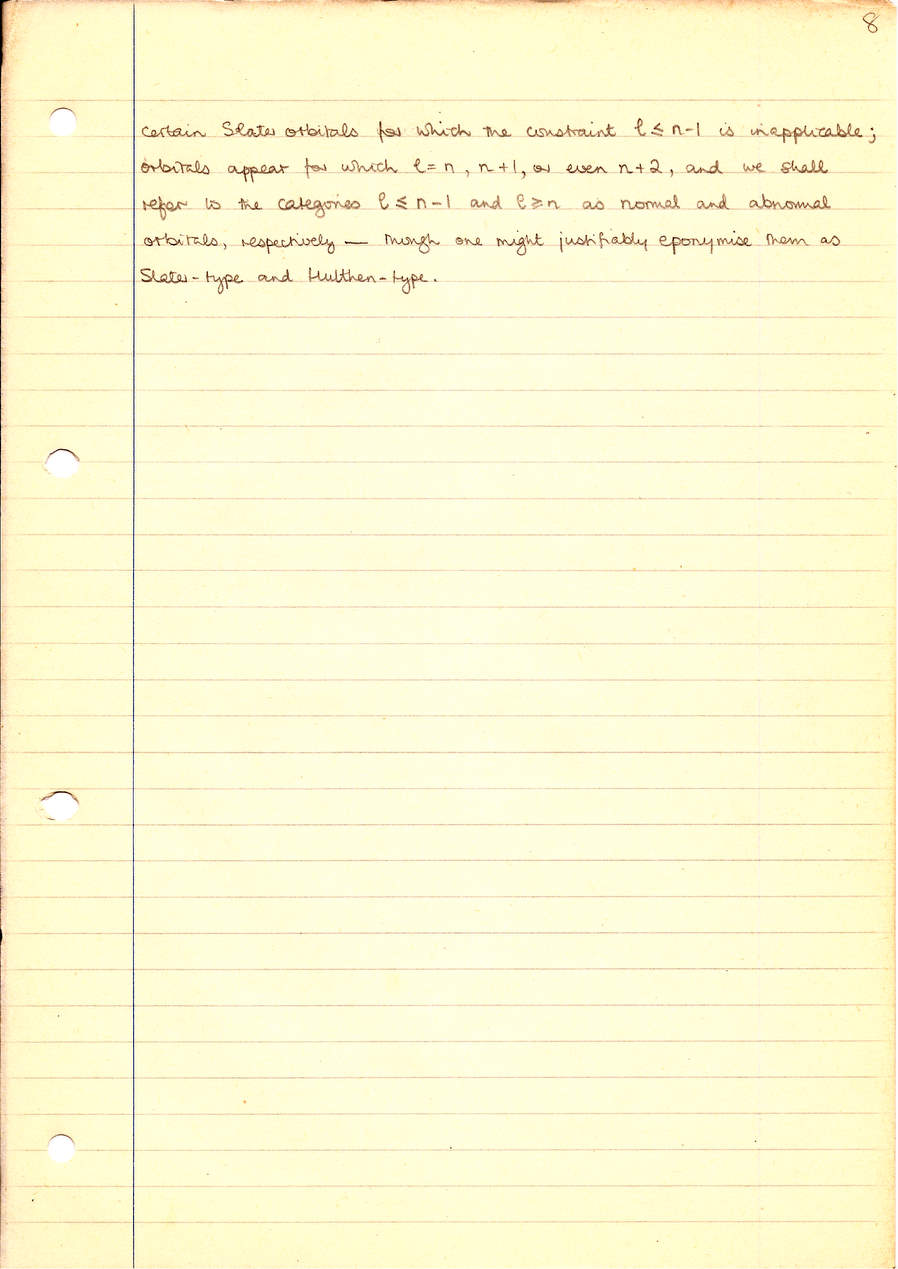 8
certain Slater orbitals for which the constraint ℓ ≤ n-1 is inapplicable;
orbitals appear for which ℓ = n, n+1, or even n+2, and we shall
refer to the categories ℓ ≤ n-1 and ℓ ≥ n as normal and abnormal
orbitals, respectively — though one might justifiably eponymise them as
Slater-type and Hulthen-type.